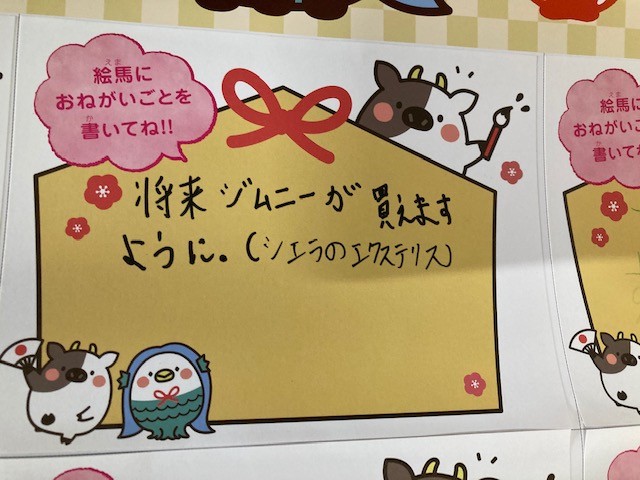 絵馬に
おねがいごとを
書いてね!!
将来 ジムニーが 買えます
ように。(シエラのエクステリス)
絵馬に
おねがいごとを
書いてね